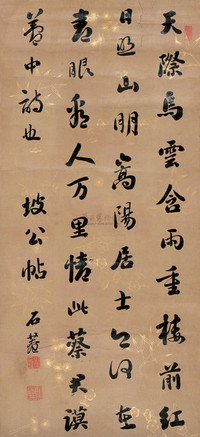 天際烏雲含雨重樓前紅
日照山明嵩陽居士今何在
青眼看人万里情此蔡君謨
夢中詩也　坡公帖　石菴